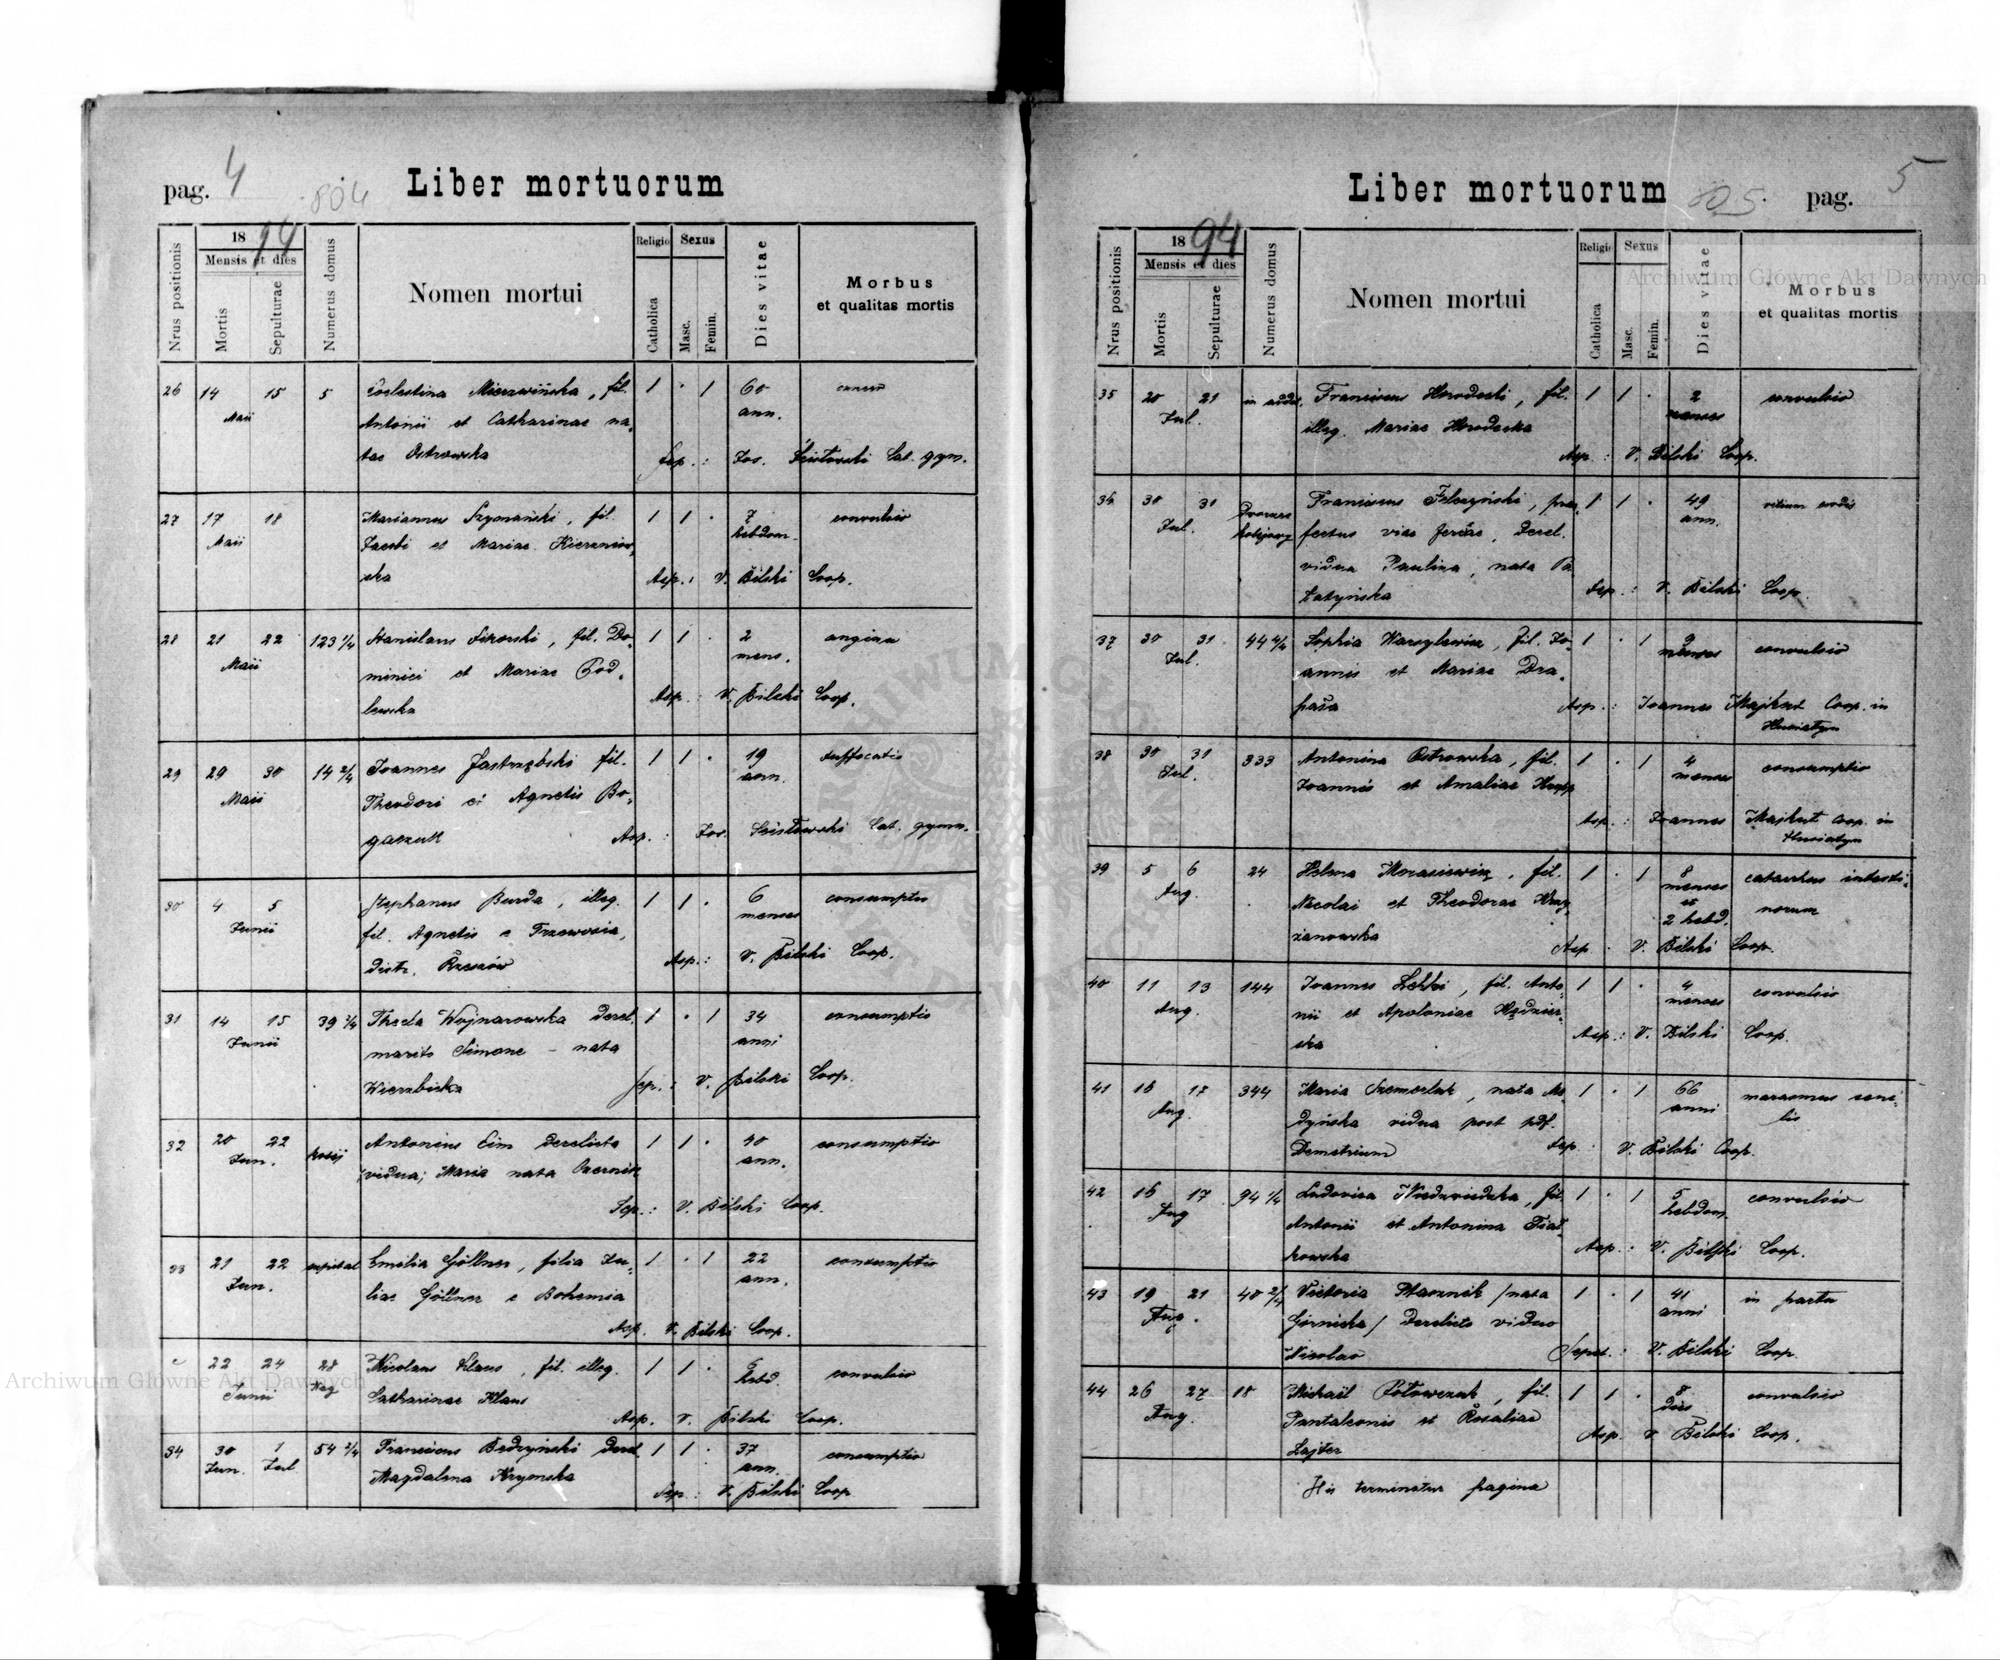 pag. 4
804
Liber mortuorum
Nrus positionis
1894
Mensis et dies
Mortis
Sepulturae
Numerus domus
Nomen mortui
Religio
Catholica
Sexus
Masc.
Femin.
Dies vitae
Morbus
et qualitas mortis
26 14 15 5 Coelestina Mierzwińska, fil. 1 . 1 60 cancer
Maii Antonii et Catharinae na- ann.
tae Ostrowska Sep.: Jos. Szistowski Cat. gym.
27 17 18 Mariannus Szymański, fil. 1 1 . 7 convulsio
Maii Jacobi et Mariae hebdom.
ska Asp.: V. Bilski Coop.
28 21 22 123 1/4 Stanislaus Sikorski, fil. Do- 1 1 . 2 angina
Maii minici et Mariae Pod- mens.
lewska Asp.: V. Bilski Coop.
29 29 30 14 2/4 Joannes Jastrzębski fil. 1 1 . 19 suffocatio
Maii Theodori et Agnetis Bo- ann.
gaczuk Asp.: Jos. Szistowski Cat. gymn.
30 4 5 Stephanus Burda, illeg. 1 1 . 6 consumptio
Junii fil. Agnetis e menses
distr. Rzeszów Asp.: V. Bilski Coop.
31 14 15 39 3/4 Thecla Wojnarowska derel. 1 . 1 34 consumptio
Junii marito Simone - nata anni
Wierzbicka Sep.: V. Bilski Coop.
32 20 22 kolej Antonius Eim derelicta 1 1 . 40 consumptio
Jun. vidua, Maria nata Czernik ann.
Sep.: V. Bilski Coop.
33 21 22 szpital Emilia Göllner, filia Ju- 1 . 1 22 consumptio
Jun. liae Göllner e Bohemia ann.
Asp. V. Bilski Coop.
22 24 28 Nicolaus Klaus, fil. illeg. 1 1 . convulsio
Junii Wag Catharinae Klaus hebd.
Asp. V. Bilski Coop.
34 30 1 54 3/4 Franciscus Bedzyński derel. 1 1 . 37 consumptio
Jun. Jul Magdalena Krymska ann.
Sep.: V. Bilski Coop
Liber mortuorum
805.
pag. 5
Nrus positionis
1894
Mensis et dies
Mortis
Sepulturae
Numerus domus
Nomen mortui
Religio
Catholica
Sexus
Masc.
Femin.
Dies vitae
Morbus
et qualitas mortis
35 20 21 Franciscus Horodecki, fil. 1 1 . 2 convulsio
Jul. illeg. Mariae Horodecka menses
Asp.: V. Bilski Coop.
36 30 31 Dworzec Franciscus Felczyński, prae- 1 1 . 49 vitium cordis
Jul. kolejowy fectus viae ferreae, derel. ann.
vidua Paulina, nata Pa-
łatyńska Sep.: V. Bilski Coop.
37 30 31 44 4/4 Sophia Warzylewicz, fil. Jo- 1 . 1 9 convulsio
Jul. annis et Mariae Dra- menses
pała Asp.: Joannes Majkut Coop. in
Husiatyn
38 30 31 333 Antonina Ostrowska, fil. 1 . 1 4 consumptio
Jul. Joannis et Amaliae menses
Asp.: Joannes Majkut Coop. in
Husiatyn
39 5 6 24 Helena Morasiewicz, fil. 1 . 1 8 catarrhus intesti-
Aug. Nicolai et Theodorae menses
et norum
żanowska 2 hebd.
Asp. V. Bilski Coop.
40 11 13 144 Joannes fil. Anto- 1 1 . 4 convulsio
Aug. nii et Apoloniae menses
ska Asp.: V. Bilski Coop.
41 16 17 344 Maria nata Mo- 1 . 1 66 marasmus seni-
Aug. dyńska vidua post pdf. anni lis
Demetrium Sep. V. Bilski Coop.
42 16 17 94 1/4 Ludovica Niedzwiedzka, fil. 1 . 1 5 convulsio
Aug Antonii et Antonina Fiał- hebdom.
kowska Asp.: V. Bilski Coop.
43 19 21 40 2/4 Victoria Ptasznik /nata 1 . 1 41 in partu
Aug. Górnicka/ derelicto viduo anni
Nicolao Sepel.: V. Bilski Coop.
44 26 27 18 Michaël Potowczuk, fil. 1 1 . 8 convulsio
Aug. Pantaleonis et Rosaliae dies
Lajter Asp. V Bilski Coop.
His terminatur pagina
Archiwum Główne Akt Dawnych
Archiwum Główne Akt Dawnych